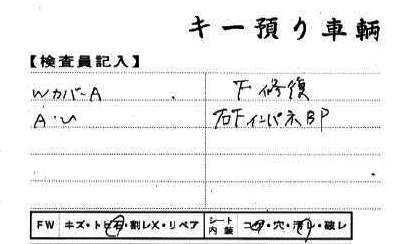 キー預り車輌
【検査員記入】
Wカバ-A
F修復
A・U
右FインパネBP
FW キズ・トビ石・割レX・リペア シート内装 コゲ・穴・汚レ・破レ